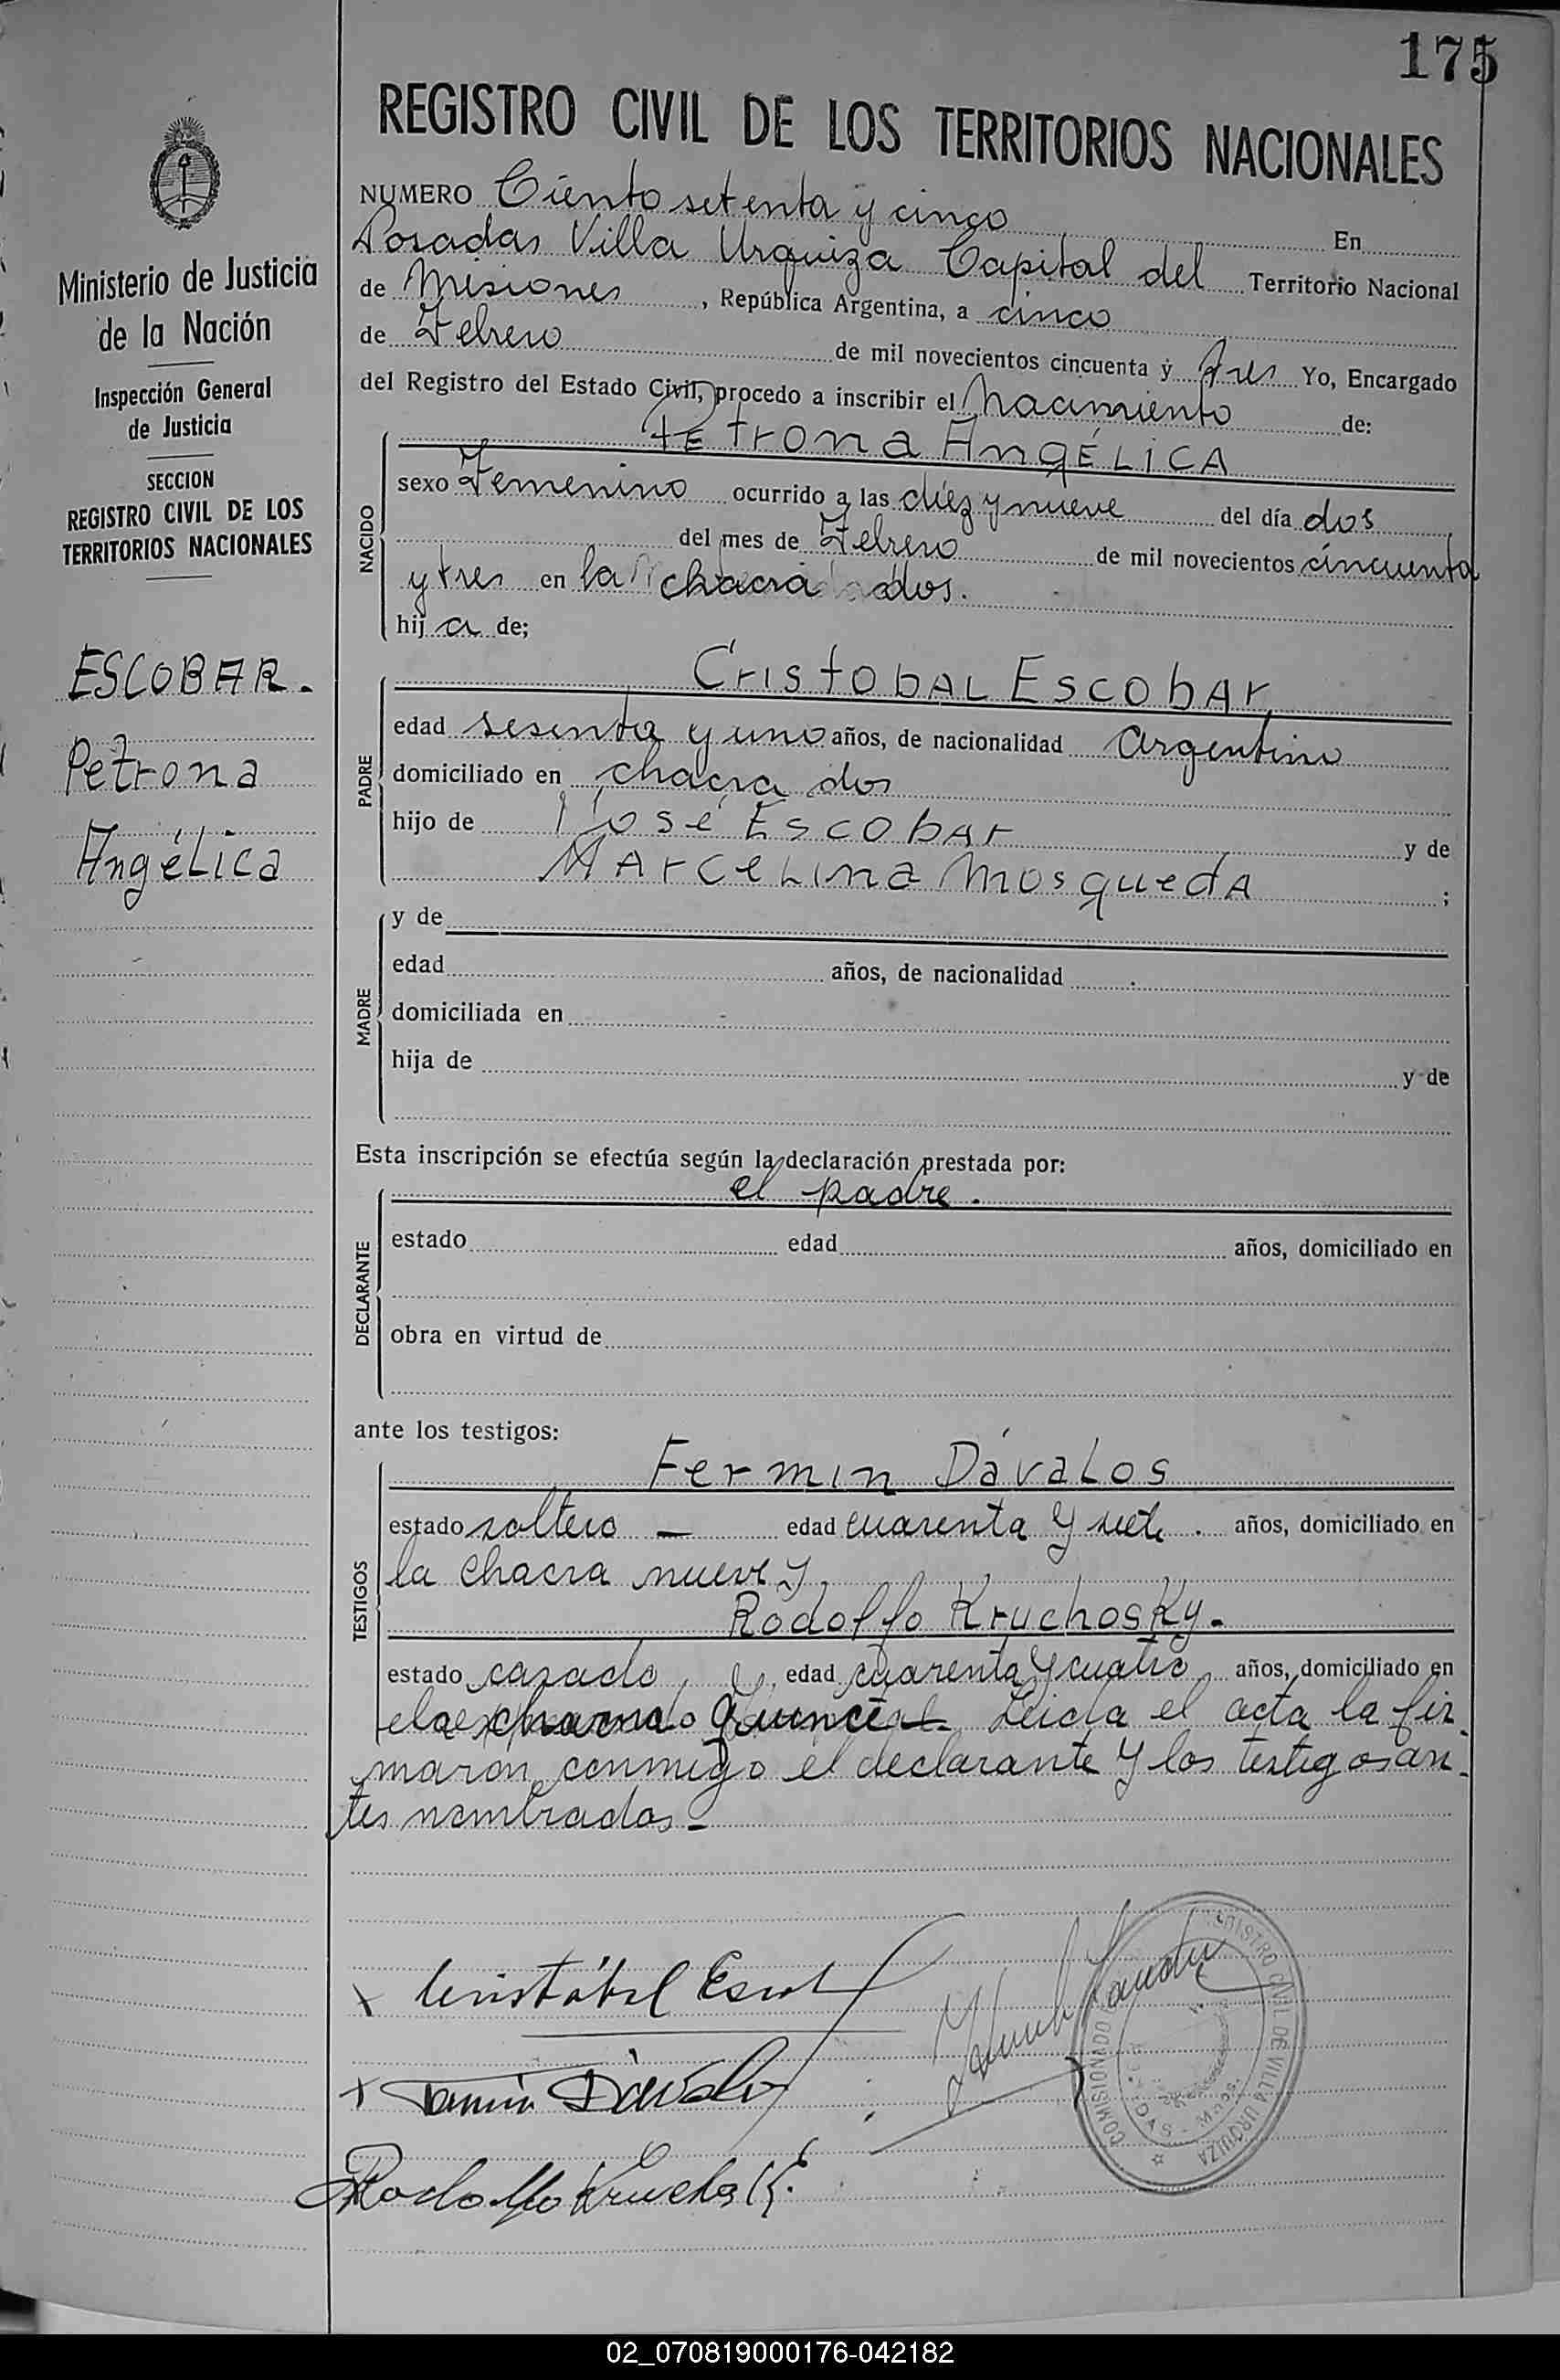 175
REGISTRO CIVIL DE LOS TERRITORIOS NACIONALES
Ministerio de Justicia
de la Nación
Inspección General
de Justicia
SECCION
REGISTRO CIVIL DE LOS
TERRITORIOS NACIONALES
ESCOBAR.
Petrona
Angélica
NUMERO Ciento setenta y cinco En
Posadas Villa Urquiza Capital del Territorio Nacional
de Misiones, República Argentina, a cinco
de Febrero de mil novecientos cincuenta y tres Yo, Encargado
del Registro del Estado Civil, procedo a inscribir el Nacimiento de:
NACIDO
PETRONA ANGÉLICA
sexo Femenino ocurrido a las diez y nueve del día dos
del mes de Febrero de mil novecientos cincuenta
y tres en la chacra dos.
hija de;
PADRE
Cristobal Escobar
edad sesenta y uno años, de nacionalidad Argentino
domiciliado en chacra dos
hijo de José Escobar y de
Marcelina Mosqueda ;
MADRE
y de
edad años, de nacionalidad
domiciliada en
hija de y de
Esta inscripción se efectúa según la declaración prestada por:
DECLARANTE
el padre.
estado edad años, domiciliado en
obra en virtud de
ante los testigos:
TESTIGOS
Fermin Dávalos
estado soltero — edad cuarenta y siete. años, domiciliado en
la chacra nueve y
Rodolfo Kruchosky.
estado casado, edad cuarenta y cuatro años, domiciliado en
Leida el acta la fir
maron conmigo el declarante y los testigos an-
tes nombrados —
x Cristóbal
x Dávalos
Rodolfo
REGISTRO CIVIL DE VILLA URQUIZA
COMISIONADO
02_070819000176-042182